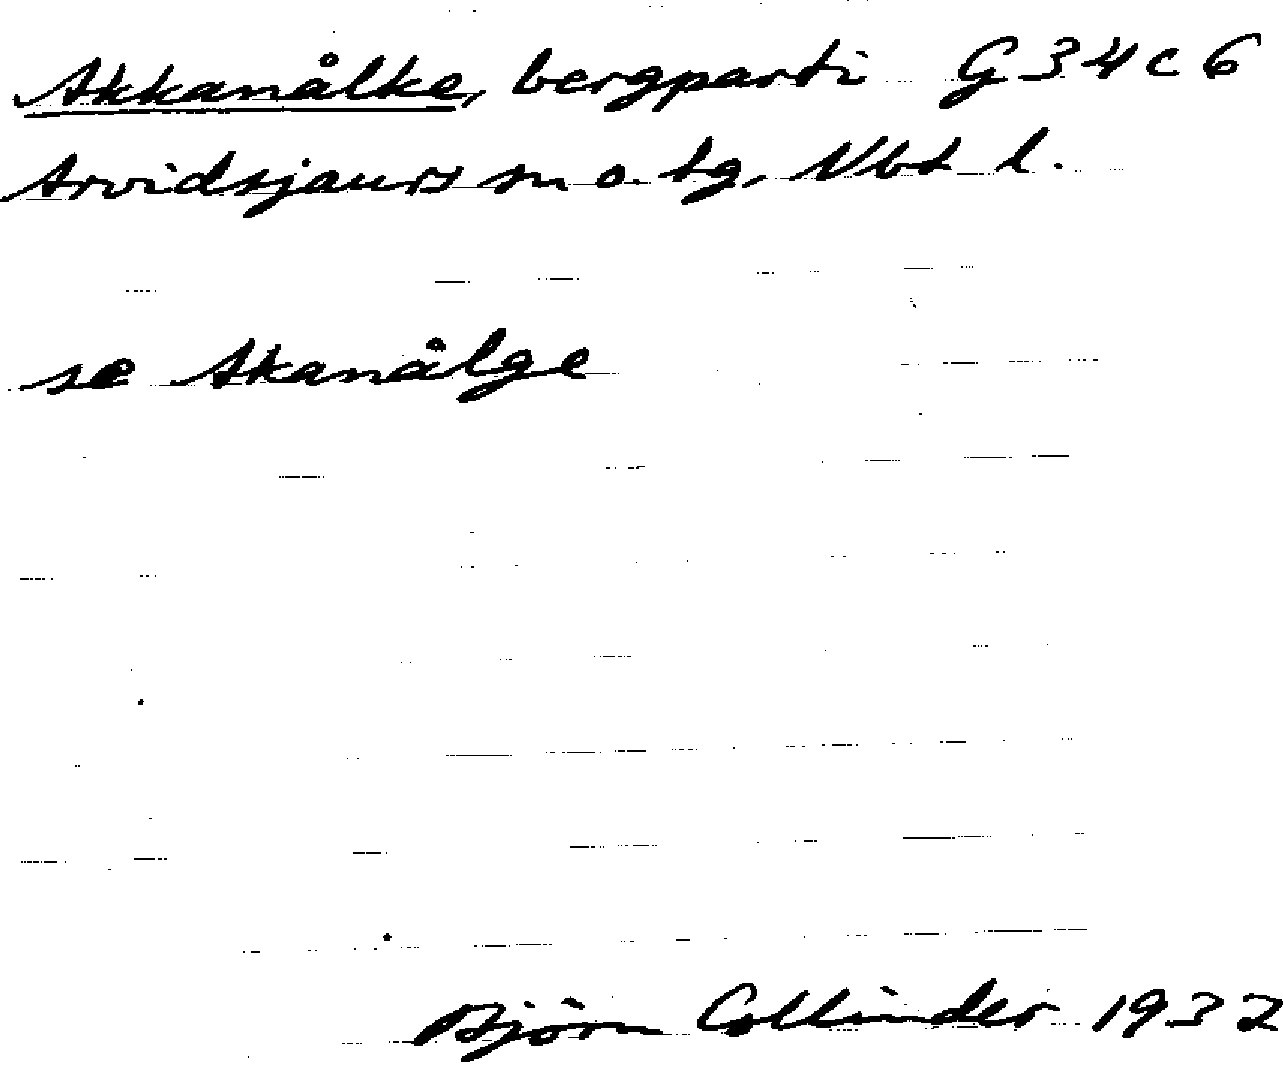 Akkanålke, bergparti G 34 c 6
Arvidsjaurs sn o. tg, Nbt l.
se Akanålge
Björn Collinder 1932